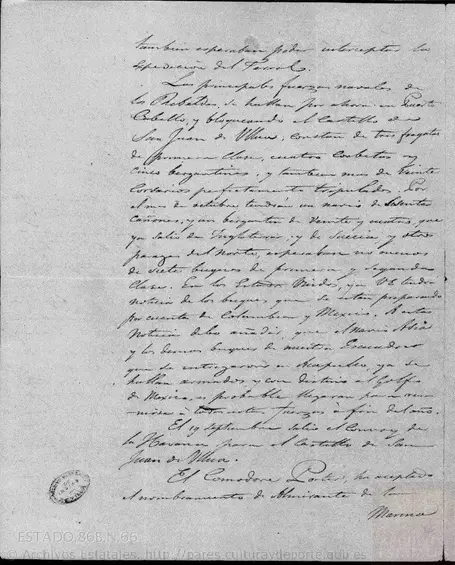 tambien esperaban poder interceptar la
espedicion del Ferrol.
Las principales fuerzas navales de
los Rebeldes, se hallan por ahora en Puerto
Cabello, y bloqueando el Castillo de
San Juan de Ulua, constan de tres fragatas
de primera clase, cuatro Corbetas y
cinco bergantines, y tambien mas de Veinte
Corsarios perfectamente tripulados. Por
el mes de octubre tendrán un navio de Sesenta
Cañones, y un bergantin de Veinte y cuatro, que
ya salió de Inglaterra, y de Suecia y otros
parages del Norte, esperaban no menos
de siete buques de primera y Segunda
Clase. En los Estados Unidos, ya VE tendrá
noticia de los buques, que se están preparando
por cuenta de Columbia y Mexico. A estas
Noticias debo añadir, que el navio Asia
y los demas buques de nuestra Escuadra
que se entregaron en Acapulco, ya se
hallan armados, y con destino al Golfo
de Mexico, es probable llegaran para
á fin del año.
El 19 septiembre salió el Comboy de
la Havana para el Castillo de San
Juan de Ulua.
El Comodoro Porter, ha aceptado
el nombramiento de Almirante de la
Marina
ESTADO,86B,N.65
© Archivos Estatales, http://pares.culturaydeporte.gob.es